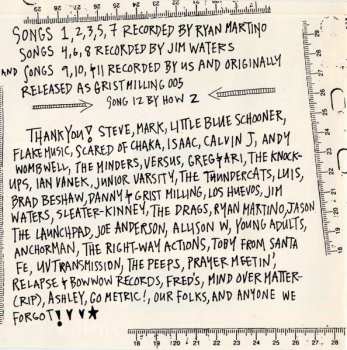 SONGS 1,2,3,5,7 RECORDED BY RYAN MARTINO
SONGS 4,6,8 RECORDED BY JIM WATERS
AND SONGS 9,10,&11 RECORDED BY US AND ORIGINALLY
RELEASED AS GRISTMILLING 005
SONG 12 BY HOW 2
THANK YOU! STEVE, MARK, LITTLE BLUE SCHOONER,
FLAKE MUSIC, SCARED OF CHAKA, ISAAC, CALVIN J, ANDY
WOMBWELL, THE MINDERS, VERSUS, GREG & ARI, THE KNOCK-
UPS, IAN VANEK, JUNIOR VARSITY, THE THUNDERCATS, LUIS,
BRAD BESHAW, DANNY & GRIST MILLING, LOS HUEVOS, JIM
WATERS, SLEATER-KINNEY, THE DRAGS, RYAN MARTINO, JASON
THE LAUNCHPAD, JOE ANDERSON, ALLISON W, YOUNG ADULTS,
ANCHORMAN, THE RIGHT-WAY ACTIONS, TOBY FROM SANTA
FE, UV TRANSMISSION, THE PEEPS, PRAYER MEETIN',
RELAPSE & BOWWOW RECORDS, FRED'S, MIND OVER MATTER-
(RIP), ASHLEY, GO METRIC!, OUR FOLKS, AND ANYONE WE
FORGOT!
18 19 20 21 22 23 24 25 26 27 28